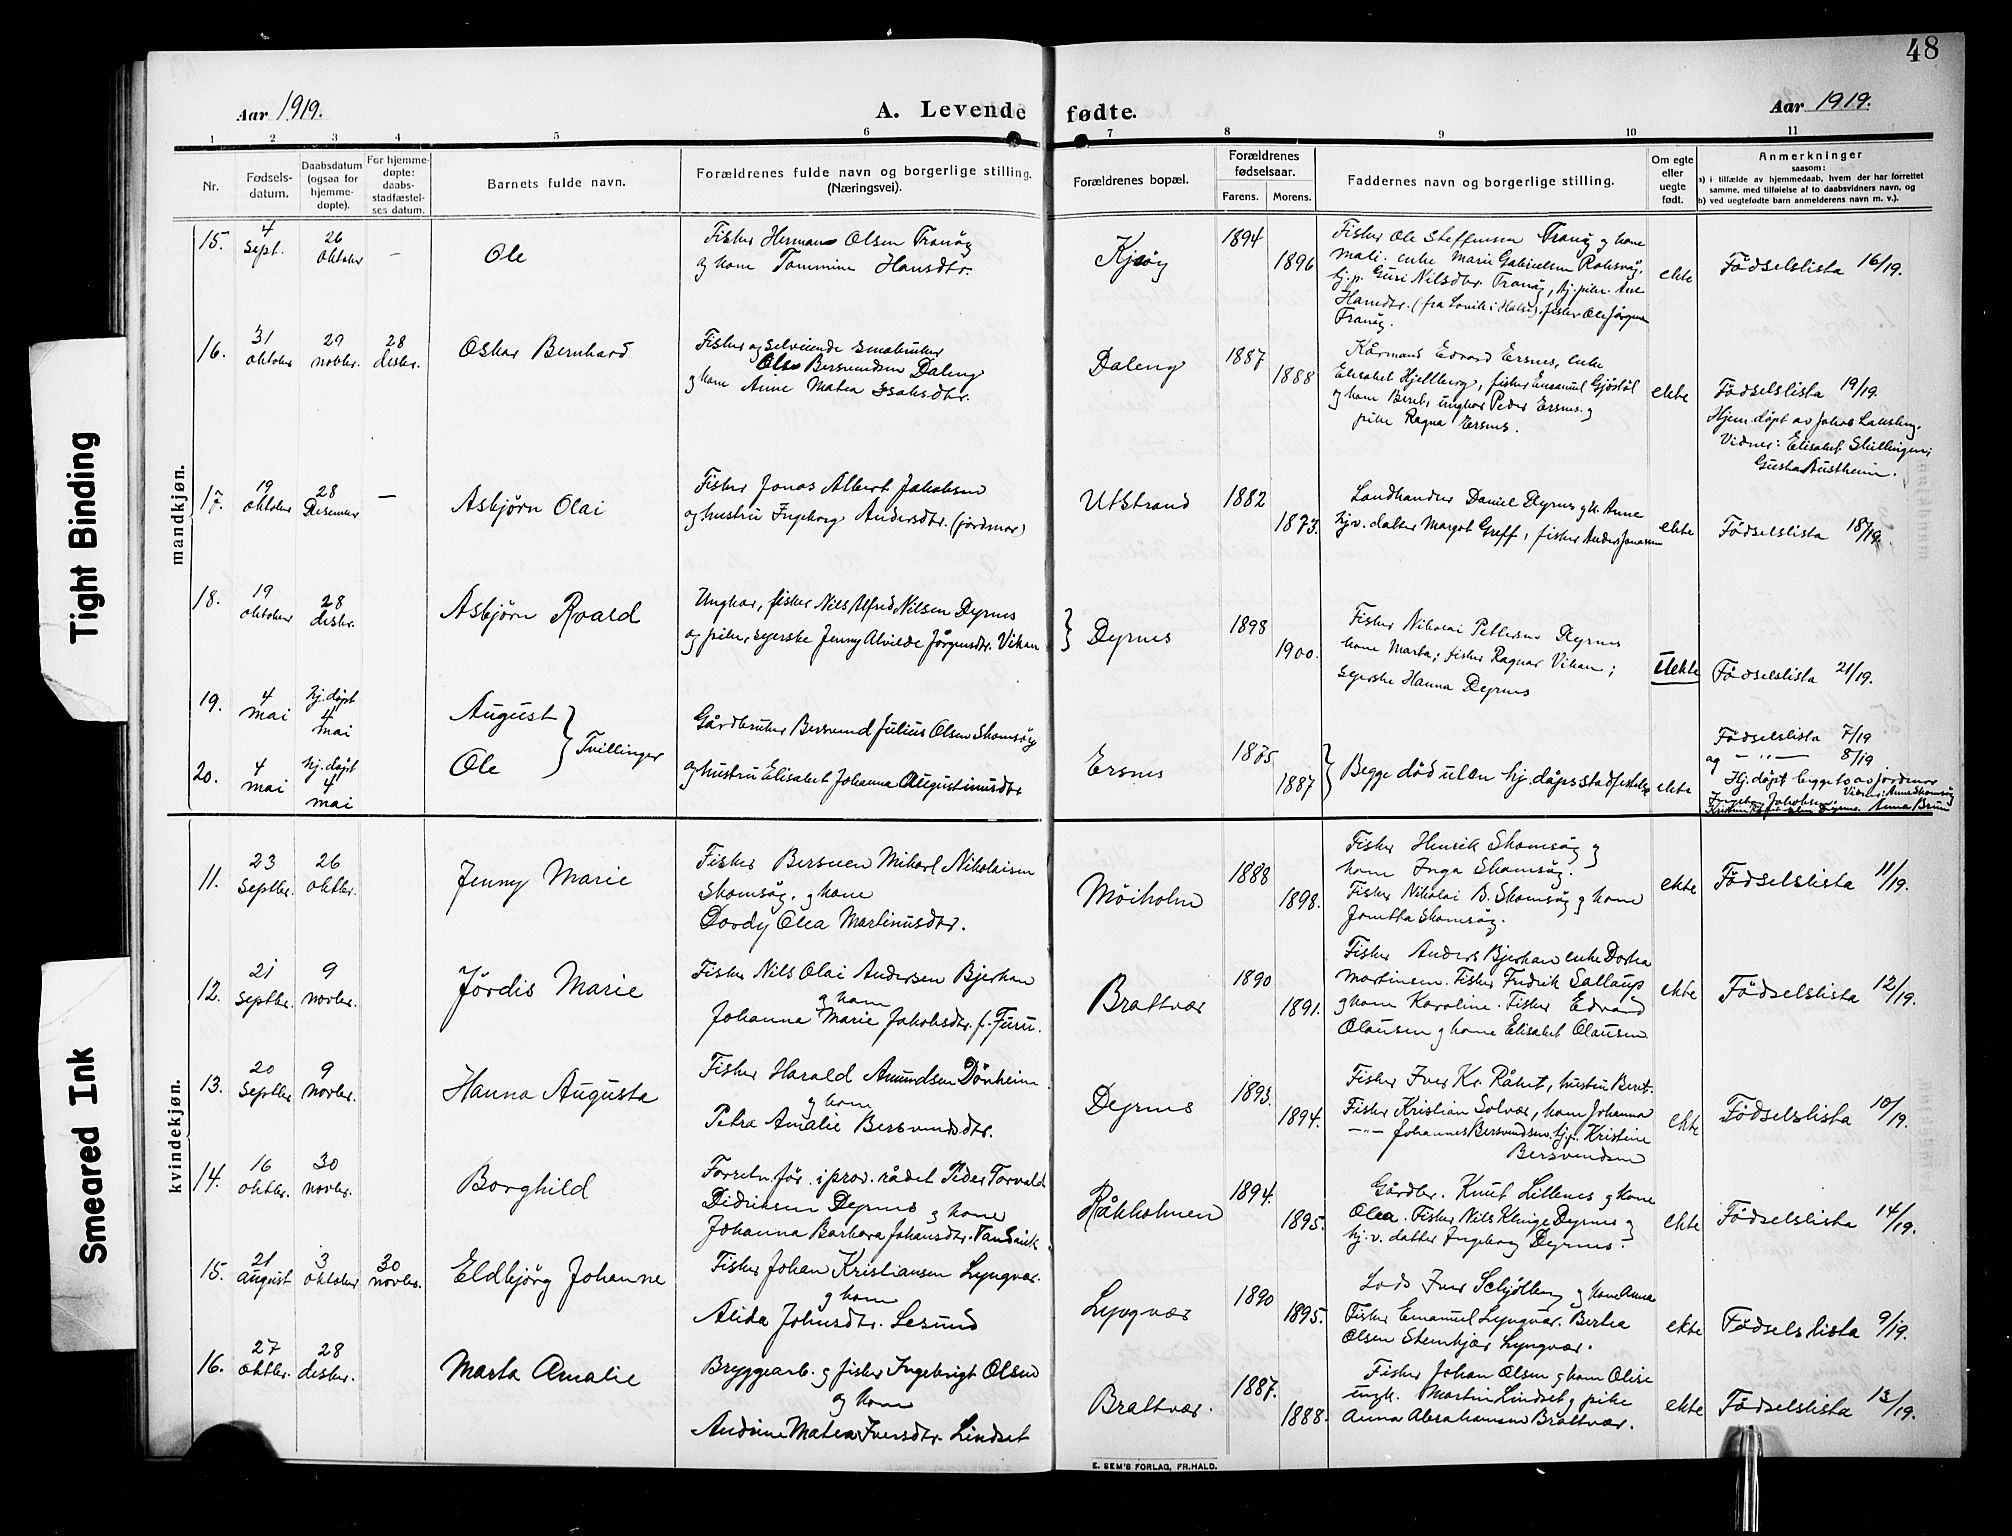 48
Aar 1919.
A. Levende fødte.
Aar 1919.
1 2 3 4 5 6 7 8 9 10 11
Nr.
Fødsels-
datum.
Daabsdatum
(ogsaa for
hjemme-
døpte).
For hjemme-
døpte:
daabs-
stadfæstel-
ses datum.
Barnets fulde navn.
Forældrenes fulde navn og borgerlige stilling.
(Næringsvei).
Forældrenes bopæl.
Forældrenes
fødselsaar.
Farens. Morens.
Faddernes navn og borgerlige stilling.
Om egte
eller
uegte
født.
Anmerkninger
saasom:
a) i tilfælde av hjemmedaab, hvem der har forrettet
samme, med tilføielse af to daabsvidners navn, og
b) ved uegtefødte barn anmelderens navn m. v.).
mandkjøn.
15.
4
sept.
26
oktober
—
Ole
Fisker Herman Olsen Tranöy
og kone Tommine Hansdtr.
Kjöy
1894
1896
Fisker Ole Steffensen Tranöy og kone
Mali. enke Marie Gabrielsen
hj.p. Guri Nilsdtr. Tranöy, hj. pike Ane
Hansdtr. fisker Ole Jörgensen
Tranöy.
ekte
Födselslista 16/19.
16.
31
oktober
29
novbr.
28
desbr.
Oskar Bernhard
Fisker og selveiende smabruker
Ole Bersvendsen Daleng
og kone Anne Matea Isaksdtr.
Daleng
1887
1888
Kårmand Edvard Ersnes, enke
Elisabet Hjellberg, fisker Emanuel Gjöstöl
og kone Beret, ungkar Peder Ersnes og
pike Ragna Ersnes.
ekte
Födselslista 19/19.
Hjem.døpt av Jakob
Vidner: Elisabet Skillingen;
Gusta Austheim.
17.
19
oktober
28
Desember
—
Asbjörn Olai
Fisker Jonas Albert Jakobsen
og hustru Ingeborg Andersdtr. (jordmor)
Utstrand
1882
1873.
Landhandler Daniel Dyrnes og k. Anne
hjv. datter Margot Greff, fisker Anders Jonassen
ekte
Födselslista 18/19.
18.
19
oktober
28
desbr.
Asbjörn Roald
Ungkar, fisker Nils Alfred Nilsen Dyrnes
og pike, syerske Jenny Alvilde Jörgensdtr. Vikan
Dyrnes
1898
1900.
Fisker Nikolai Pettersen Dyrnes
kone Marta; fisker Ragnar Vikan;
syerske Hanna Dyrnes
Uekte
Födselslista 21/19.
19.
4
mai
hj. døpt
4
mai
August
Tvillinger
20.
4
mai
hj. døpt
4
mai
Ole
Gårdbruker Bersvend Julius Olsen Skomsöy
og hustru Elisabet Johanna Augustinusdtr
Ersnes
1875
1887
Begge död uten hj. dåpsstadfestelse
ekte
Födselslista 7/19
og — „ — 8/19
Hj. døpt begge to av jordmor
Ingeborg Jakobsen Vidner: Anne Skomsöy
Anna Bruun
kvindekjøn.
11.
23
Septbr.
26
oktbr.
Jenny Marie
Fisker Bersvend Mikael Nikolaisen
Skomsöy. og kone
Dordy Olea Martinusdtr.
Möiholm
1888
1898.
Fisker Henrik Skomsöy og
kone Inga Skomsöy.
Fisker Nikolai B. Skomsöy og kone
Jonetta Skomsöy.
ekte
Födselslista 11/19.
12.
21
Septbr.
9
novbr.
Jördis Marie
Fisker Nils Olai Andersen Bjerkan
og kone
Johanne Marie Jakobsdtr. f. Furu.
Brattvær
1890
1891.
Fisker Anders Bjerkan enke Dortea
Martinsen. Fisker Fredrik Sallaup
og kone Karoline. Fisker Edvard
Olausen og kone Elisabet Olausen
ekte
Födselslista 12/19.
13.
20
Septbr
9
novbr.
Hanna Augusta
Fisker Harald Amundsen Dönheim
og kone
Petra Amalie Bersvendsdtr.
Dyrnes
1893.
1894.
Fisker Iver Kr. Råket, hustru Beret.
Fisker Kristian Solvær, kone Johanna
—„— Johannes Bersvendsen. hj.p. Kristine
Bersvendsen
ekte
Födselslista 10/19.
14.
16
oktbr.
30
novbr.
Borghild
Forretn.för. i prov. rådet Peder Torvald
Didriksen Dyrnes og kone
Johanna Barbara Johansdtr. Vandvik
Råkholmen
1894.
1895.
Gårdbr. Knut Lillenes og kone
Olea. Fisker Nils Klinge Dyrnes og
hj. v. datter Ingeborg Dyrnes.
ekte
Födselslista 14/19.
15.
21
august
3
oktober
30
novbr.
Eldbjörg Johanne
Fisker Johan Kristiansen Lyngvær.
og kone
Alida Johnsdtr. Lesund
Lyngvær
1890
1895.
Lods Iver Schjölberg og kone Anna
Fisker Emanuel Lyngvær. Bertea
Olsen Stenkjær Lyngvær.
ekte
Födselslista 9/19.
16.
27
oktbr.
28
desbr.
Marta Amalie
Bryggearb. og fisker Ingebrigt Olsen
og kone
Andrine Matea Iversdtr. Lindset
Brattvær.
1887.
1888.
Fisker Johan Olsen og kone Olise
ungk. Martin Lindset og pike
Anna Abrahamsen Brattvær.
ekte
Födselslista 13/19.
E. SEM'S FORLAG, FR.HALD.
Tight Binding
Smeared Ink